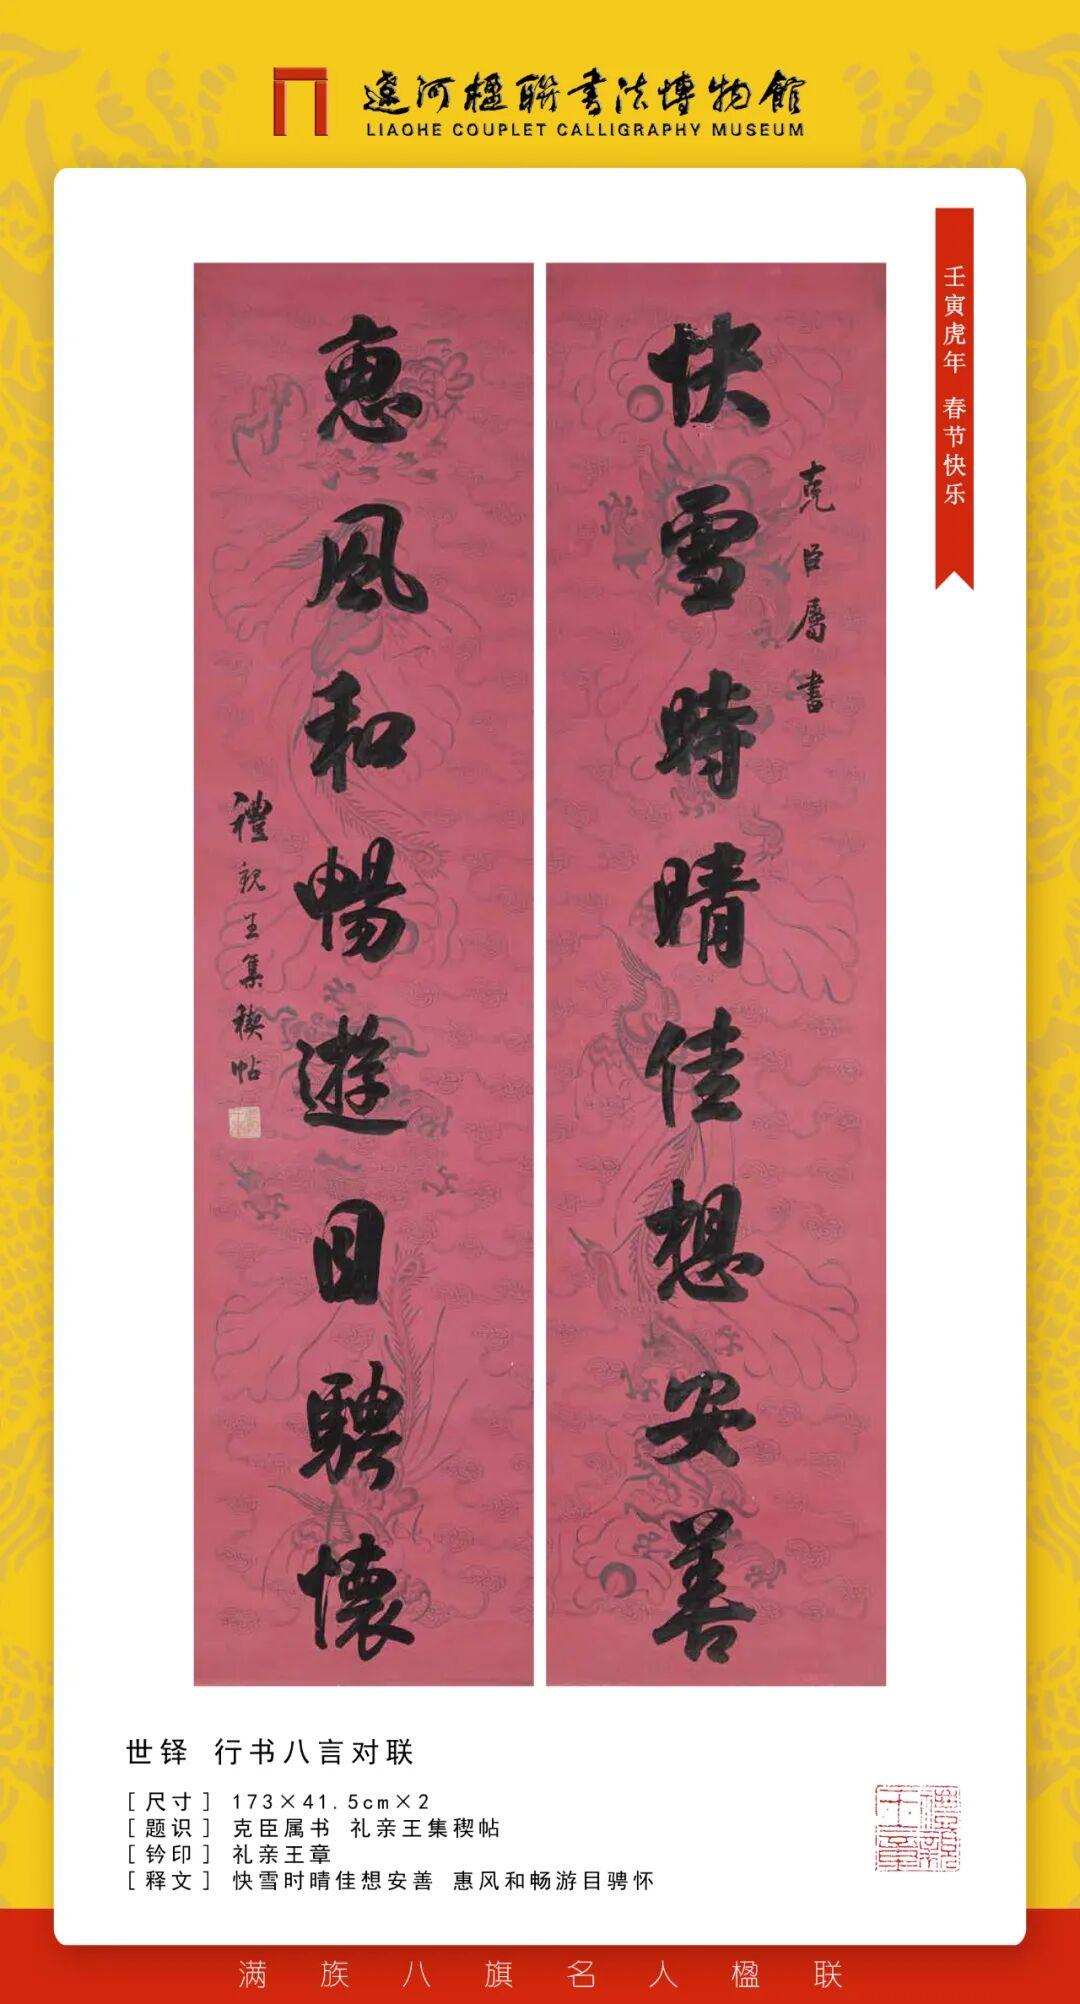 遼河楹聯書法博物館
LIAOHE COUPLET CALLIGRAPHY MUSEUM
壬寅虎年 春节快乐
克臣屬書
快雪時晴佳想安善
惠風和暢遊目騁懷
禮親王集稧帖
世铎 行书八言对联
[尺寸] 173×41.5cm×2
[题识] 克臣属书 礼亲王集稧帖
[钤印] 礼亲王章
[释文] 快雪时晴佳想安善 惠风和畅游目骋怀
禮親王章
满族八旗名人楹联